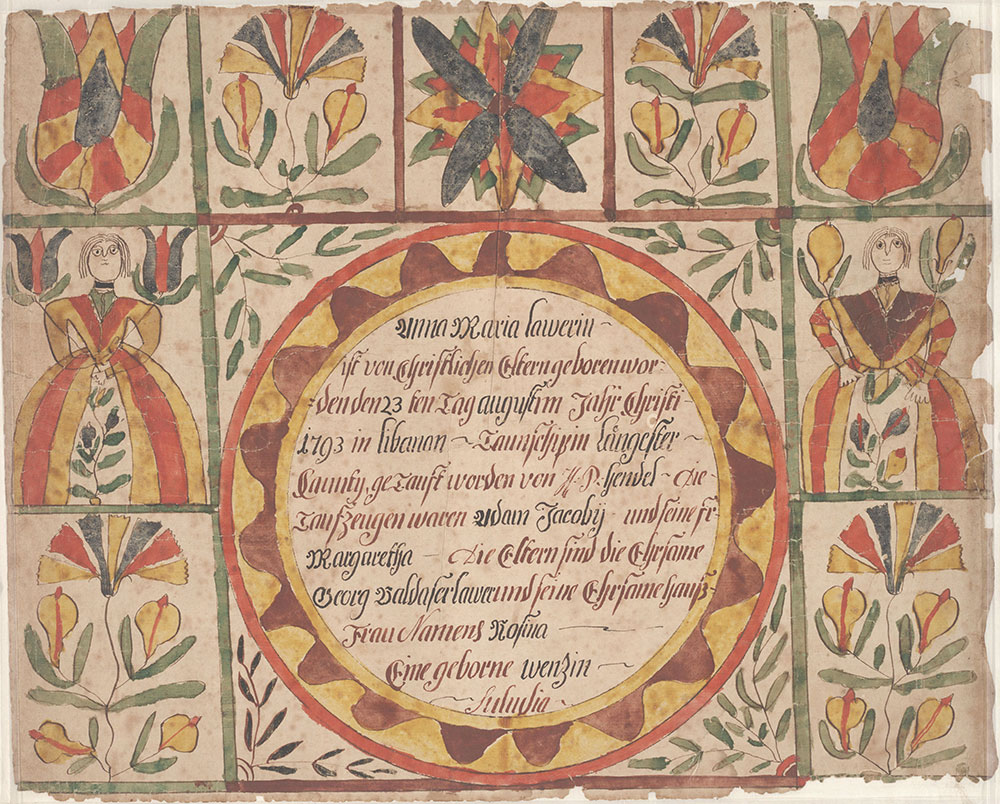 Anna Maria lawerin
ist von Christlichen Eltern geboren wor-
den den 23 ten Tag august im Jahr Christi
1793 in libanon ~ Taunschip in längester
Caunty, ge Tauft worden von H. P. Hendel - Die
Taufzeugen waren Adam Jacobÿ - und seine fr
Margaretha - Die Eltern sind die Ehrsame
Georg Baldaser lawer und seine Ehrsame hauß-
Frau Namens Rosina
Eine geborne wenzin ~